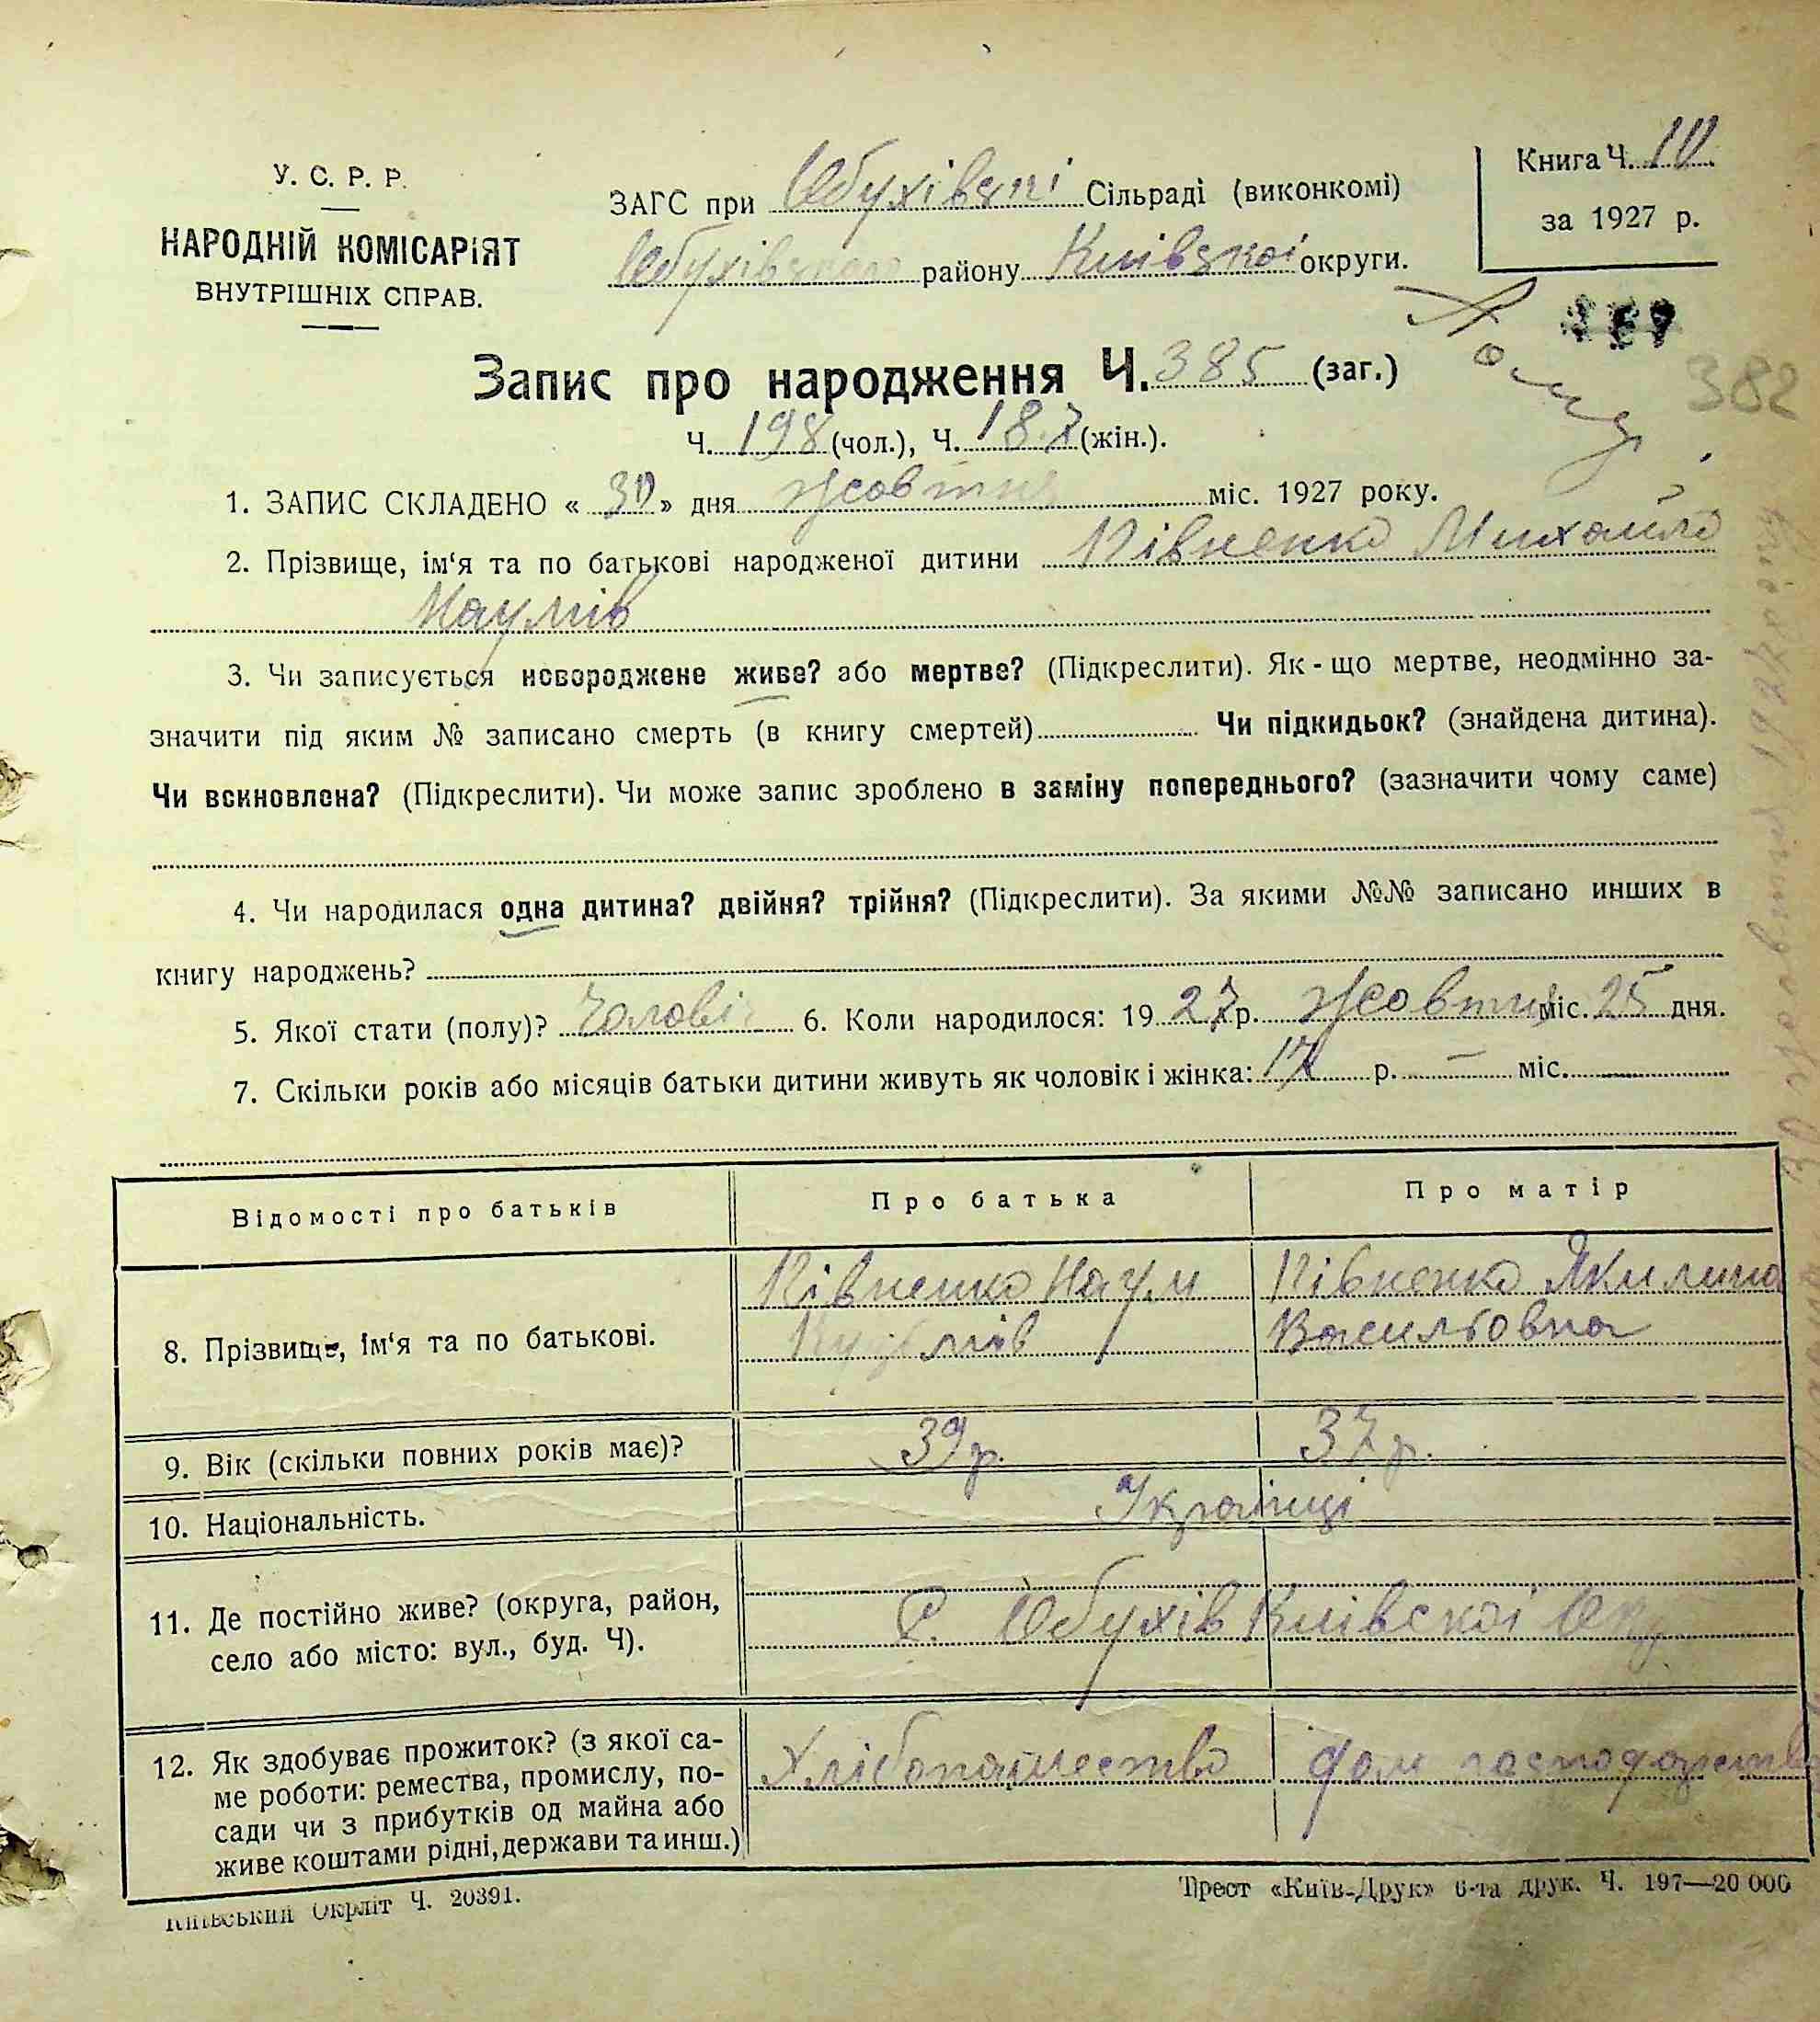 У. С. Р. Р.
НАРОДНІЙ КОМІСАРІЯТ
ВНУТРІШНІХ СПРАВ.
ЗАГС при Обухівскі Сільраді (виконкомі)
Обухівского району Київскої округи.
Книга Ч. 10
за 1927 р.
382
Запис про народження Ч. 385 (заг.)
Ч. 198 (чол.), Ч. 187 (жін.).
1. ЗАПИС СКЛАДЕНО « 30 » дня Жовтня міс. 1927 року.
2. Прізвище, ім‘я та по батькові народженої дитини Півненко Михайло
Наумів
3. Чи записується новороджене живе? або мертве? (Підкреслити). Як-що мертве, неодмінно за-
значити під яким № записано смерть (в книгу смертей) Чи підкидьок? (знайдена дитина).
Чи вскновлена? (Підкреслити). Чи може запис зроблено в заміну попереднього? (зазначити чому саме)
4. Чи народилася одна дитина? двійня? трійня? (Підкреслити). За якими №№ записано инших в
книгу народжень?
5. Якої стати (полу)? Чолові 6. Коли народилося: 19 27 р. Жовтня міс. 25 дня.
7. Скільки років або місяців батьки дитини живуть як чоловік і жінка: 17 р. — міс.
Відомості про батьків Про батька Про матір
8. Прізвище, ім‘я та по батькові.
Півненко Наум
Кузьмів
Півненко Якилина
Васильовна
9. Вік (скільки повних років має)? 39 р. 37 р.
10. Національність. Українці
11. Де постійно живе? (округа, район,
село або місто: вул., буд. Ч).
С. Обухів Київскої Окр
12. Як здобуває прожиток? (з якої са-
ме роботи: ремества, промислу, по-
сади чи з прибутків од майна або
живе коштами рідні, держави та инш.)
Хлібопашество
дом господарство
Київський Окрліт Ч. 20391.
Трест «Київ-Друк» 6-та друк. Ч. 197—20 000